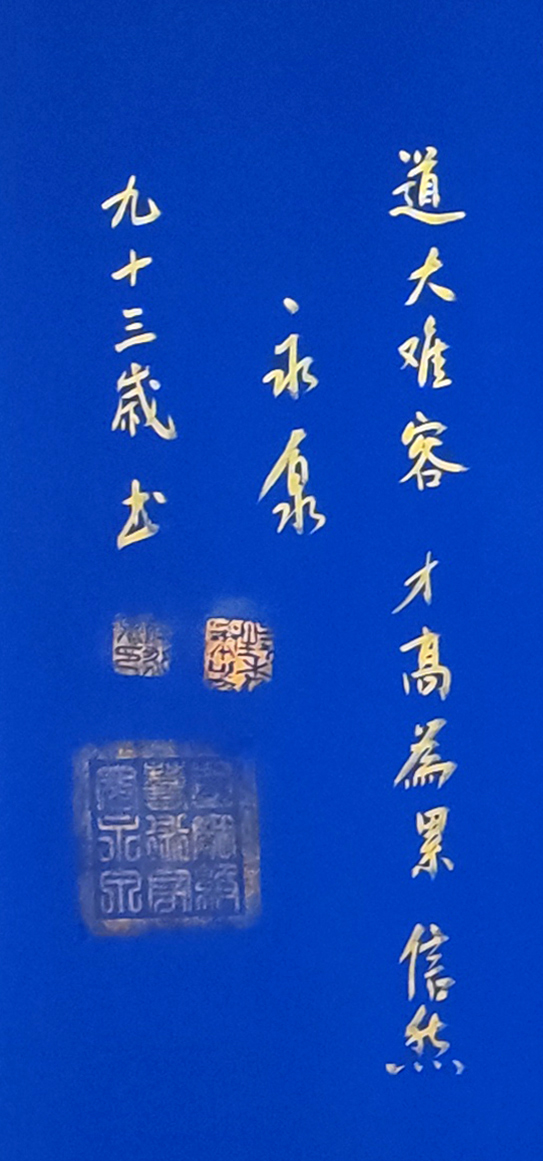 道大难容 才高為累 信然
永泉
九十三歲 书